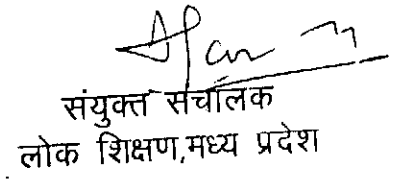 संयुक्त संचालक
लोक शिक्षण,मध्य प्रदेश